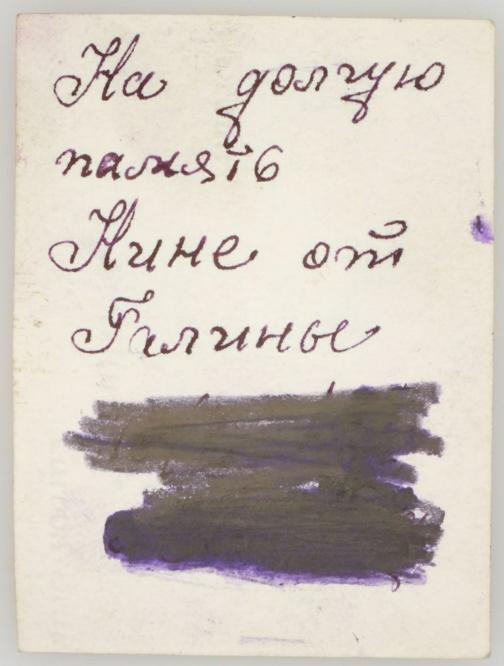 На долгую
память
Нине от
Галины